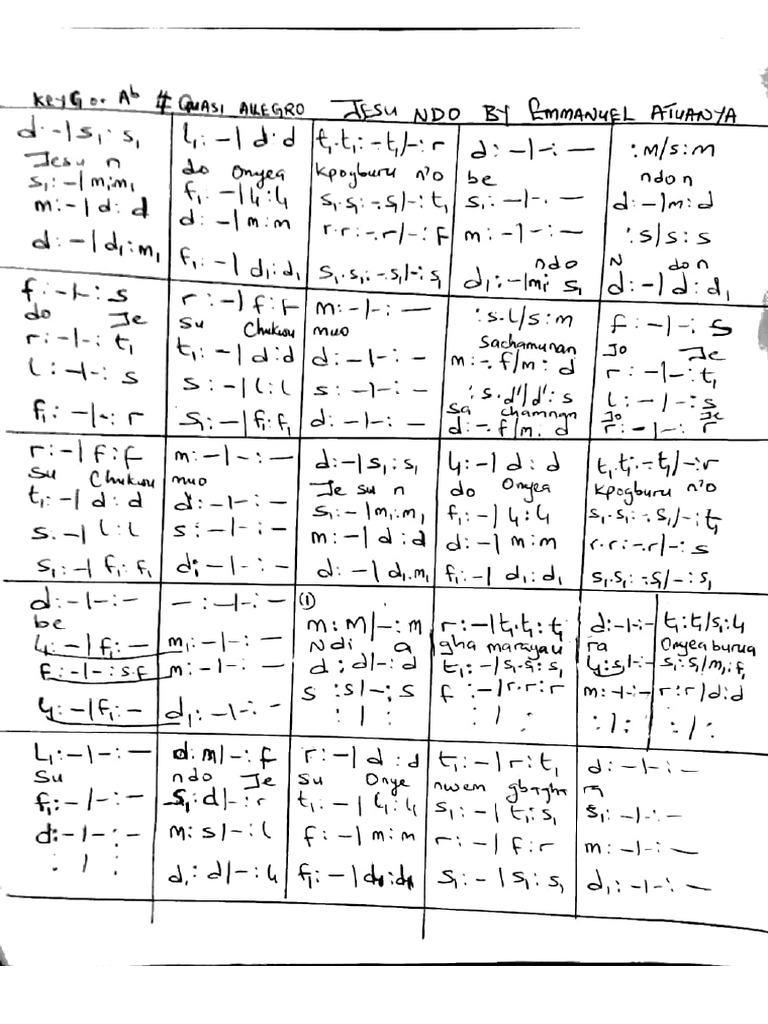 Key G or Ab # QUASI ALLEGRO JESU NDO BY EMMANUEL ATUANYA
d:-|s₁:s₁ l₁:-|d:d t₁.t₁:-.t₁|-:r d:-|-:— :m/s:m
Jesu n do Onyea kpogburu n'o be ndo n
s₁:-|m₁:m₁ f₁:-|l₁:l₁ s₁.s₁:-.s₁|-:t₁ s₁:-|-:— d:-|m:d
m:-|d:d d:-|m:m r.r:-.r/-:f m:-|-:— :s/s:s
ndo N do n
d:-|d₁:m₁ f₁:-|d₁:d₁ s₁.s₁:-.s₁|-:s₁ d₁:-|m₁ s₁ d:-|d:d₁
f:-|-:s r:-|f:f m:-|-:— :s.l/s:m f:-|-:s
do Je su Chukwu muo Sachamunan Jo Je
r:-|-:t₁ t₁:-|d:d d:-|-:- m:-.f/m:d r:-|-:t₁
l:-|-:s s:-|l:l s:-|-:- :s.d'/d':s l:-|-:s
Sa chamnan Jo Je
f₁:-|-:r s₁:-|f₁:f₁ d:-|-:- d:-.f/m:d r:-|-:r
r:-|f:f m:-|-:— d:-|s₁:s₁ l₁:-|d:d t₁.t₁:-.t₁/-:r
su Chukwu muo Je su n do Onyea kpogburu n'o
t₁:-|d:d d:-|-:- s₁:-|m₁:m₁ f₁:-|l₁:l₁ s₁.s₁:-.s₁/-:t₁
s:-|l:l s:-|-:- m:-|d:d d:-|m:m r.r:-.r/-:s
s₁:-|f₁:f₁ d:-|-:- d:-|d₁.m₁ f₁:-|d₁:d₁ s₁.s₁:-.s₁/-:s₁
d:-|-:- -:-|-:— (1) m:m/-:m r:-|t₁.t₁:t₁ d:-|-:- t₁:t₁/s₁:l₁
be Ndi a gha marayau ra Onyeaburua
l₁:-|f₁:— m₁:-|-:— d:d/-:d t₁:-|s₁.s₁:s₁ l₁:s₁|-:- s₁:s₁/m₁:f₁
f:-|-:s.f m:-|-:— s:s/-:s f:-|r.r:r m:-|-:- r:r/d:d
l₁:-|f₁:- d₁:-|-:- :|: :/: :/: :/:
l₁:-|-:— d:m/-:f r:-|d:d t₁:-|r:t₁ d:-|-:-
su ndo Je su Onye nwem gbagha ra
f₁:-|-:- s₁:d/-:r t₁:-|l₁:l₁ s₁:-|t₁:s₁ s₁:-|-:-
d:-|-:- m:s/-:l f:-|m:m r:-|f:r m:-|-:—
:/: d₁:d/-:l₁ f₁:-|d₁:d₁ s₁:-|s₁:s₁ d₁:-|-:—